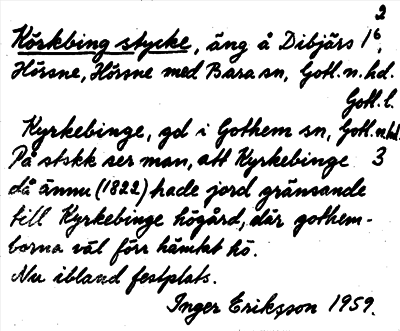 2
Körkbing stycke, äng å Dibjärs 1⁶,
Hörsne, Hörsne med Bara sn, Gotl. n. hd.
Gotl. l.
Kyrkebinge, gd i Gothem sn, Gotl. n. hd.
På stskk ser man, att Kyrkebinge 3
då ännu (1822) hade jord gränsande
till Kyrkebinge högård, där gothem-
borna väl förr hämtat hö.
Nu ibland festplats.
Inger Eriksson 1959.